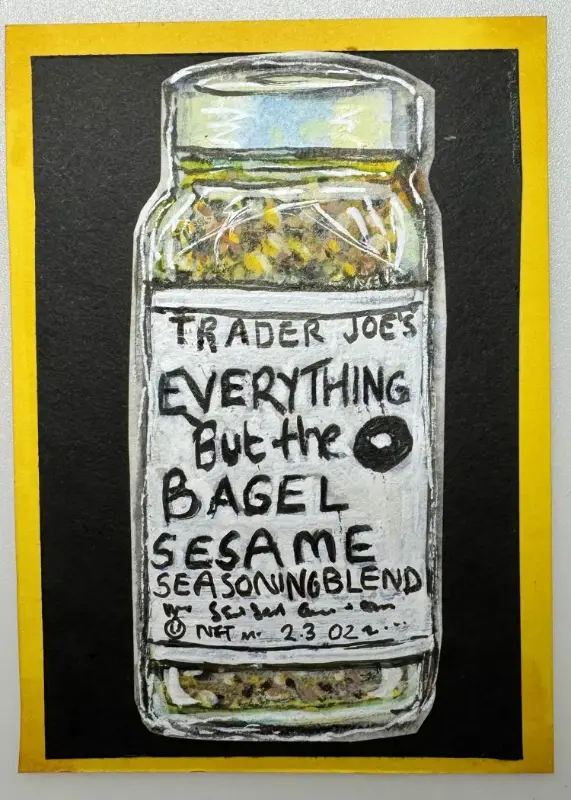 TRADER JOE'S
EVERYTHING
But the
BAGEL
SESAME
SEASONING BLEND
NET 2.3 OZ